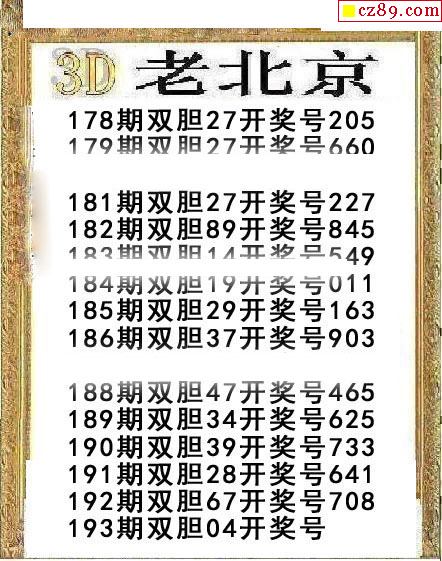 cz89.com
3D 老北京
178期双胆27开奖号205
179期双胆27开奖号660
181期双胆27开奖号227
182期双胆89开奖号845
183期双胆14开奖号549
184期双胆19开奖号011
185期双胆29开奖号163
186期双胆37开奖号903
188期双胆47开奖号465
189期双胆34开奖号625
190期双胆39开奖号733
191期双胆28开奖号641
192期双胆67开奖号708
193期双胆04开奖号